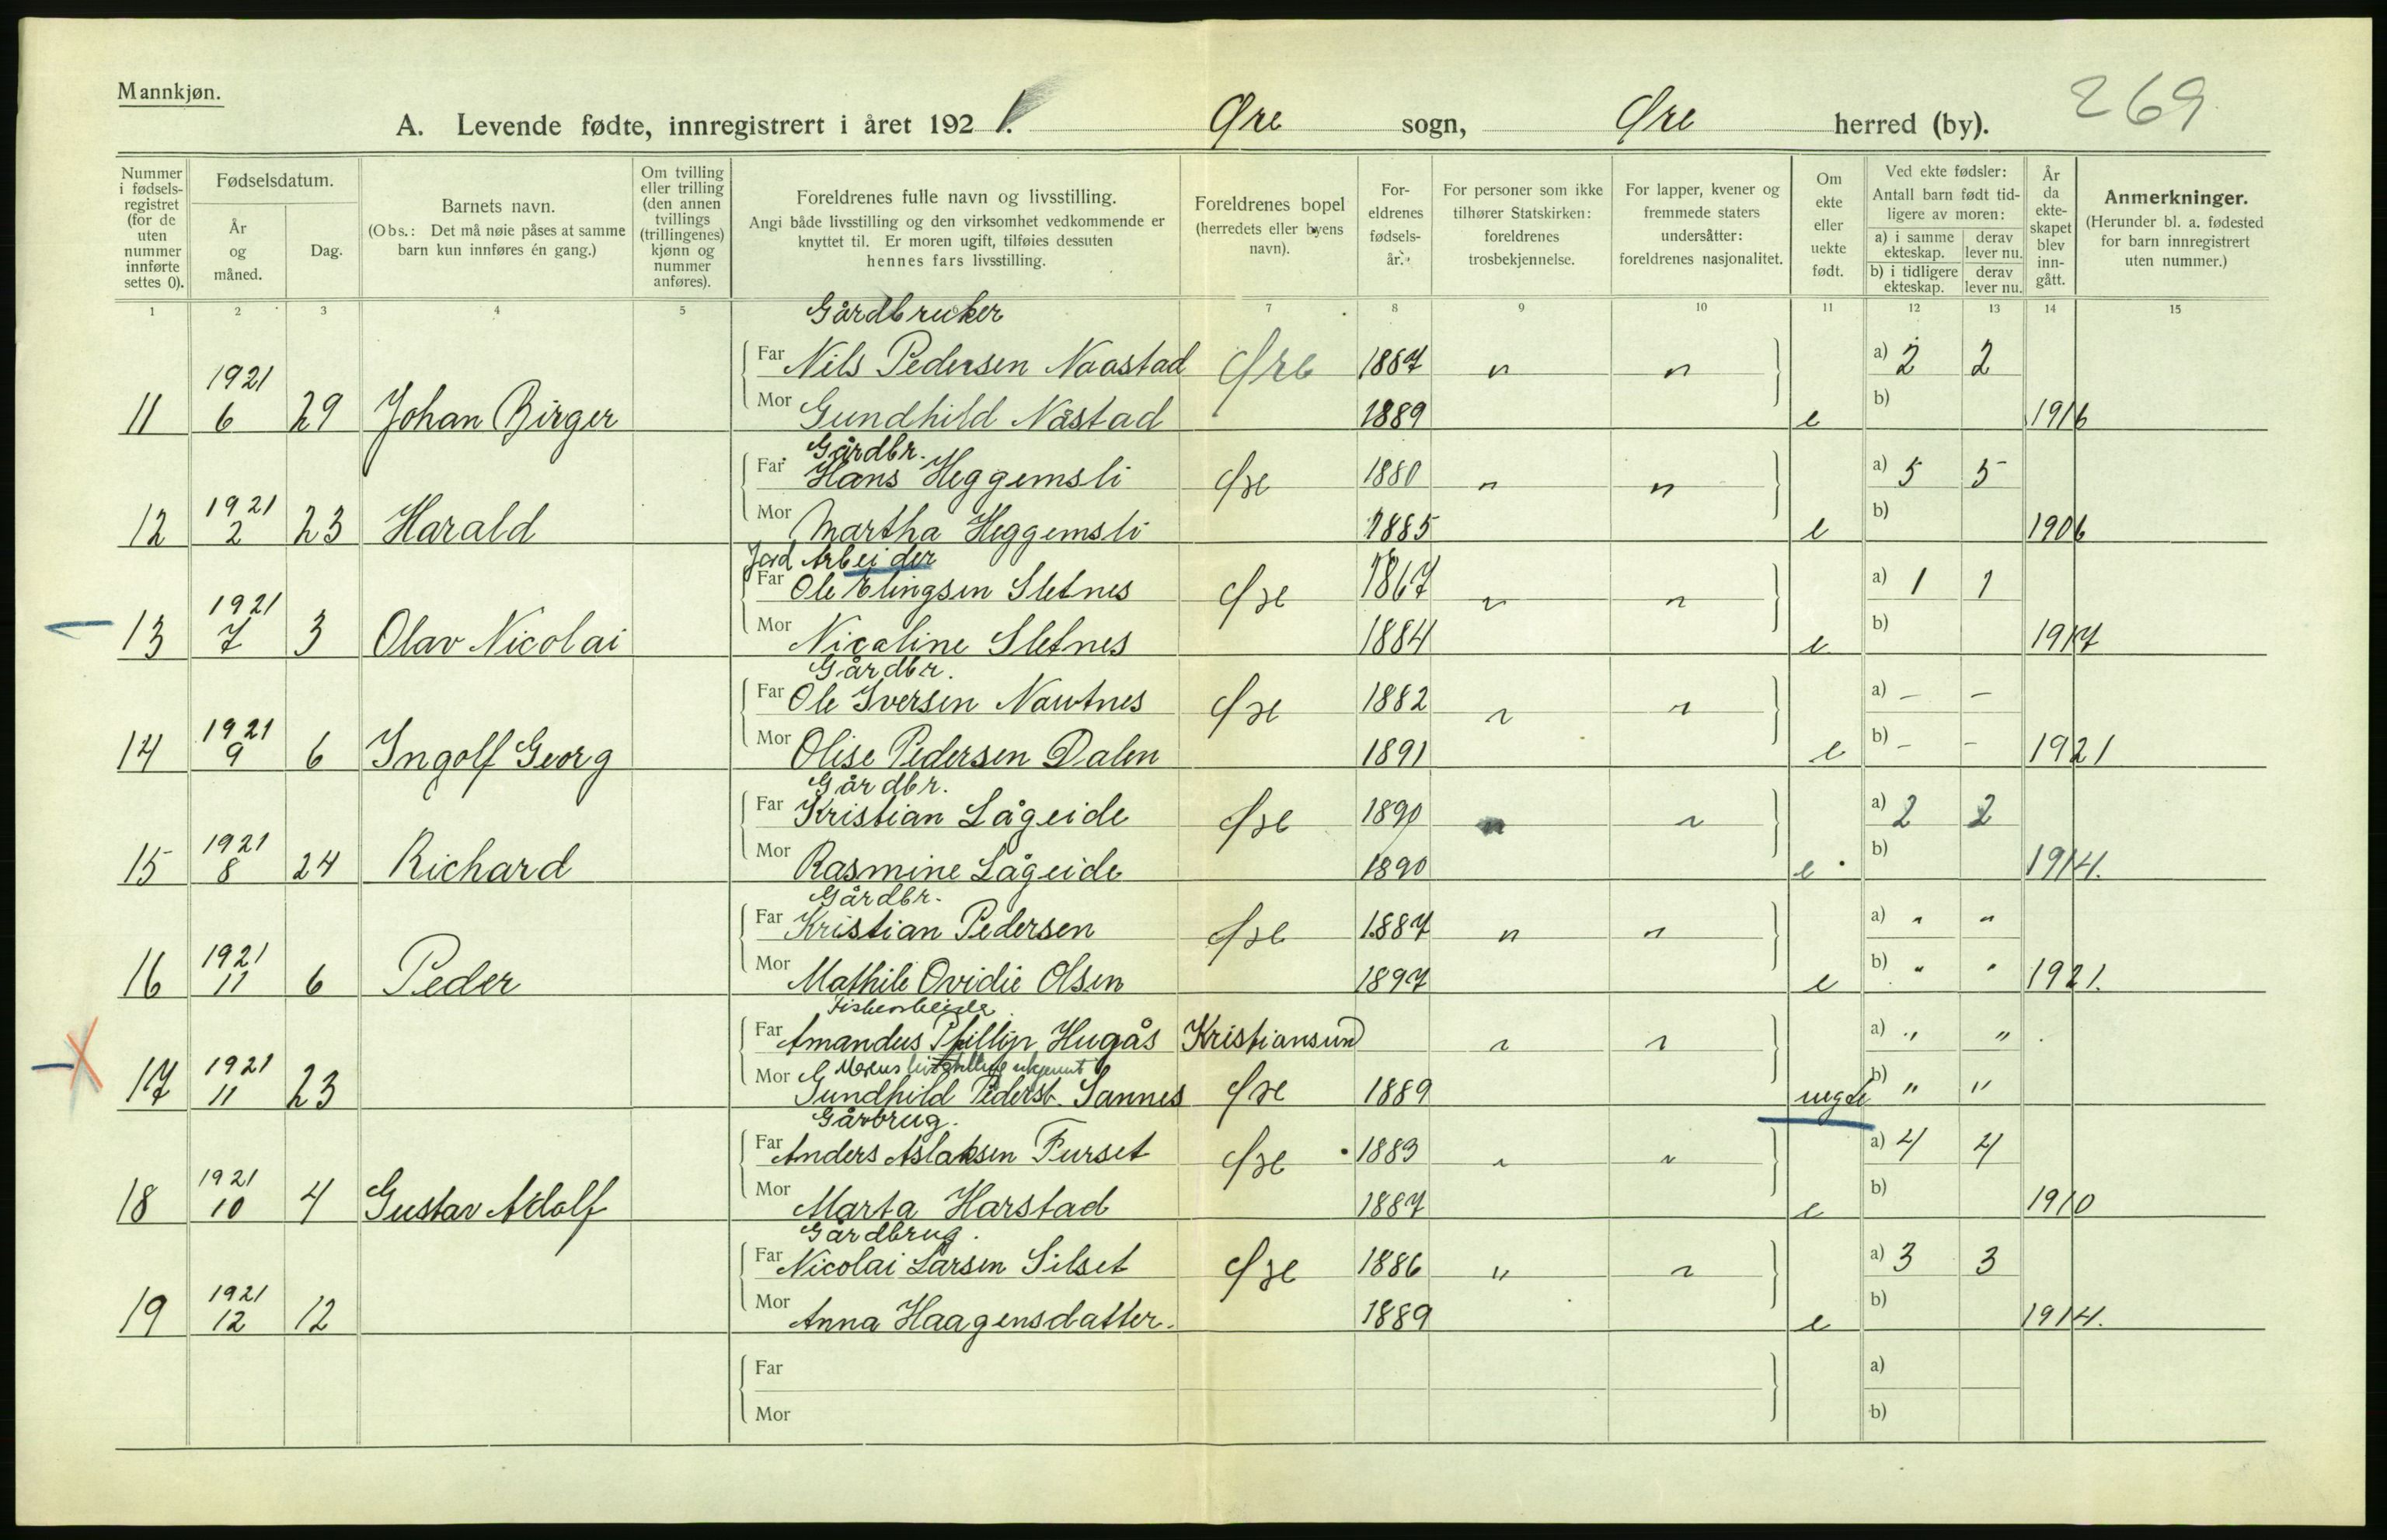 Mannkjøn.
269
A. Levende fødte, innregistrert i året 1921. Øre sogn, Øre herred (by).
Nummer i fødsels-registret (for de uten nummer innførte settes 0).
Fødselsdatum.
År og måned.
Dag.
Barnets navn.
(Obs.: Det må nøie påses at samme barn kun innføres én gang.)
Om tvilling eller trilling (den annen tvillings (trillingenes) kjønn og nummer anføres).
Foreldrenes fulle navn og livsstilling.
Angi både livsstilling og den virksomhet vedkommende er knyttet til. Er moren ugift, tilføies dessuten hennes fars livsstilling.
Foreldrenes bopel (herredets eller byens navn).
For-eldrenes fødsels-år.
For personer som ikke tilhører Statskirken: foreldrenes trosbekjennelse.
For lapper, kvener og fremmede staters undersåtter: foreldrenes nasjonalitet.
Om ekte eller uekte født.
Ved ekte fødsler:
Antall barn født tid-ligere av moren:
a) i samme ekteskap. derav lever nu.
b) i tidligere ekteskap. derav lever nu.
År da ekte-skapet blev inn-gått.
Anmerkninger.
(Herunder bl. a. fødested for barn innregistrert uten nummer.)
1 2 3 4 5 7 8 9 10 11 12 13 14 15
Gårdbruker
Far Nils Pedersen Naastad Øre 1887 " " a) 2 2
11 1921 6 29 Johan Birger Mor Gundhild Nåstad 1889 e b) 1916
Gårdbr.
Far Hans Heggemsli Øre 1880 " " a) 5 5
12 1921 2 23 Harald Mor Martha Heggemsli 1885 e b) 1906
Jord Arbeider
Far Ole Elingsen Sletnes Øre 1867 " " a) 1 1
13 1921 7 3 Olav Nicolai Mor Nicoline Sletnes 1884 e b) 1917
Gårdbr.
Far Ole Iversen Nautnes Øre 1882 " " a) - -
14 1921 9 6 Ingolf Georg Mor Olise Pedersen Dalen 1891 e b) - - 1921
Gårdbr.
Far Kristian Lågeide Øre 1890 " " a) 2 2
15 1921 8 24 Richard Mor Rasmine Lågeide 1890 e b) 1914.
Gårdbr.
Far Kristian Pedersen Øre 1887 " " a) " "
16 1921 11 6 Peder Mor Mathile Ovidie Olsen 1897 e b) " " 1921.
Far Amandus Phillip Hugås Kristiansund " " a) " "
17 1921 11 23 Mor Gundhild Pedersd. Sannes Øre 1889 uegte b) " "
Gårbrug.
Far Anders Aslaksen Furset Øre 1883 " " a) 4 4
18 1921 10 4 Gustav Adolf Mor Marta Harstad 1887 e b) 1910
Gårdbrug.
Far Nicolai Larsen Silset Øre 1886 " " a) 3 3
19 1921 12 12 Mor Anna Haagensdatter. 1889 e b) 1914.
Far a)
Mor b)